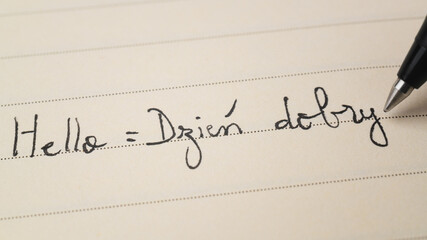 Hello = Dzień dobry